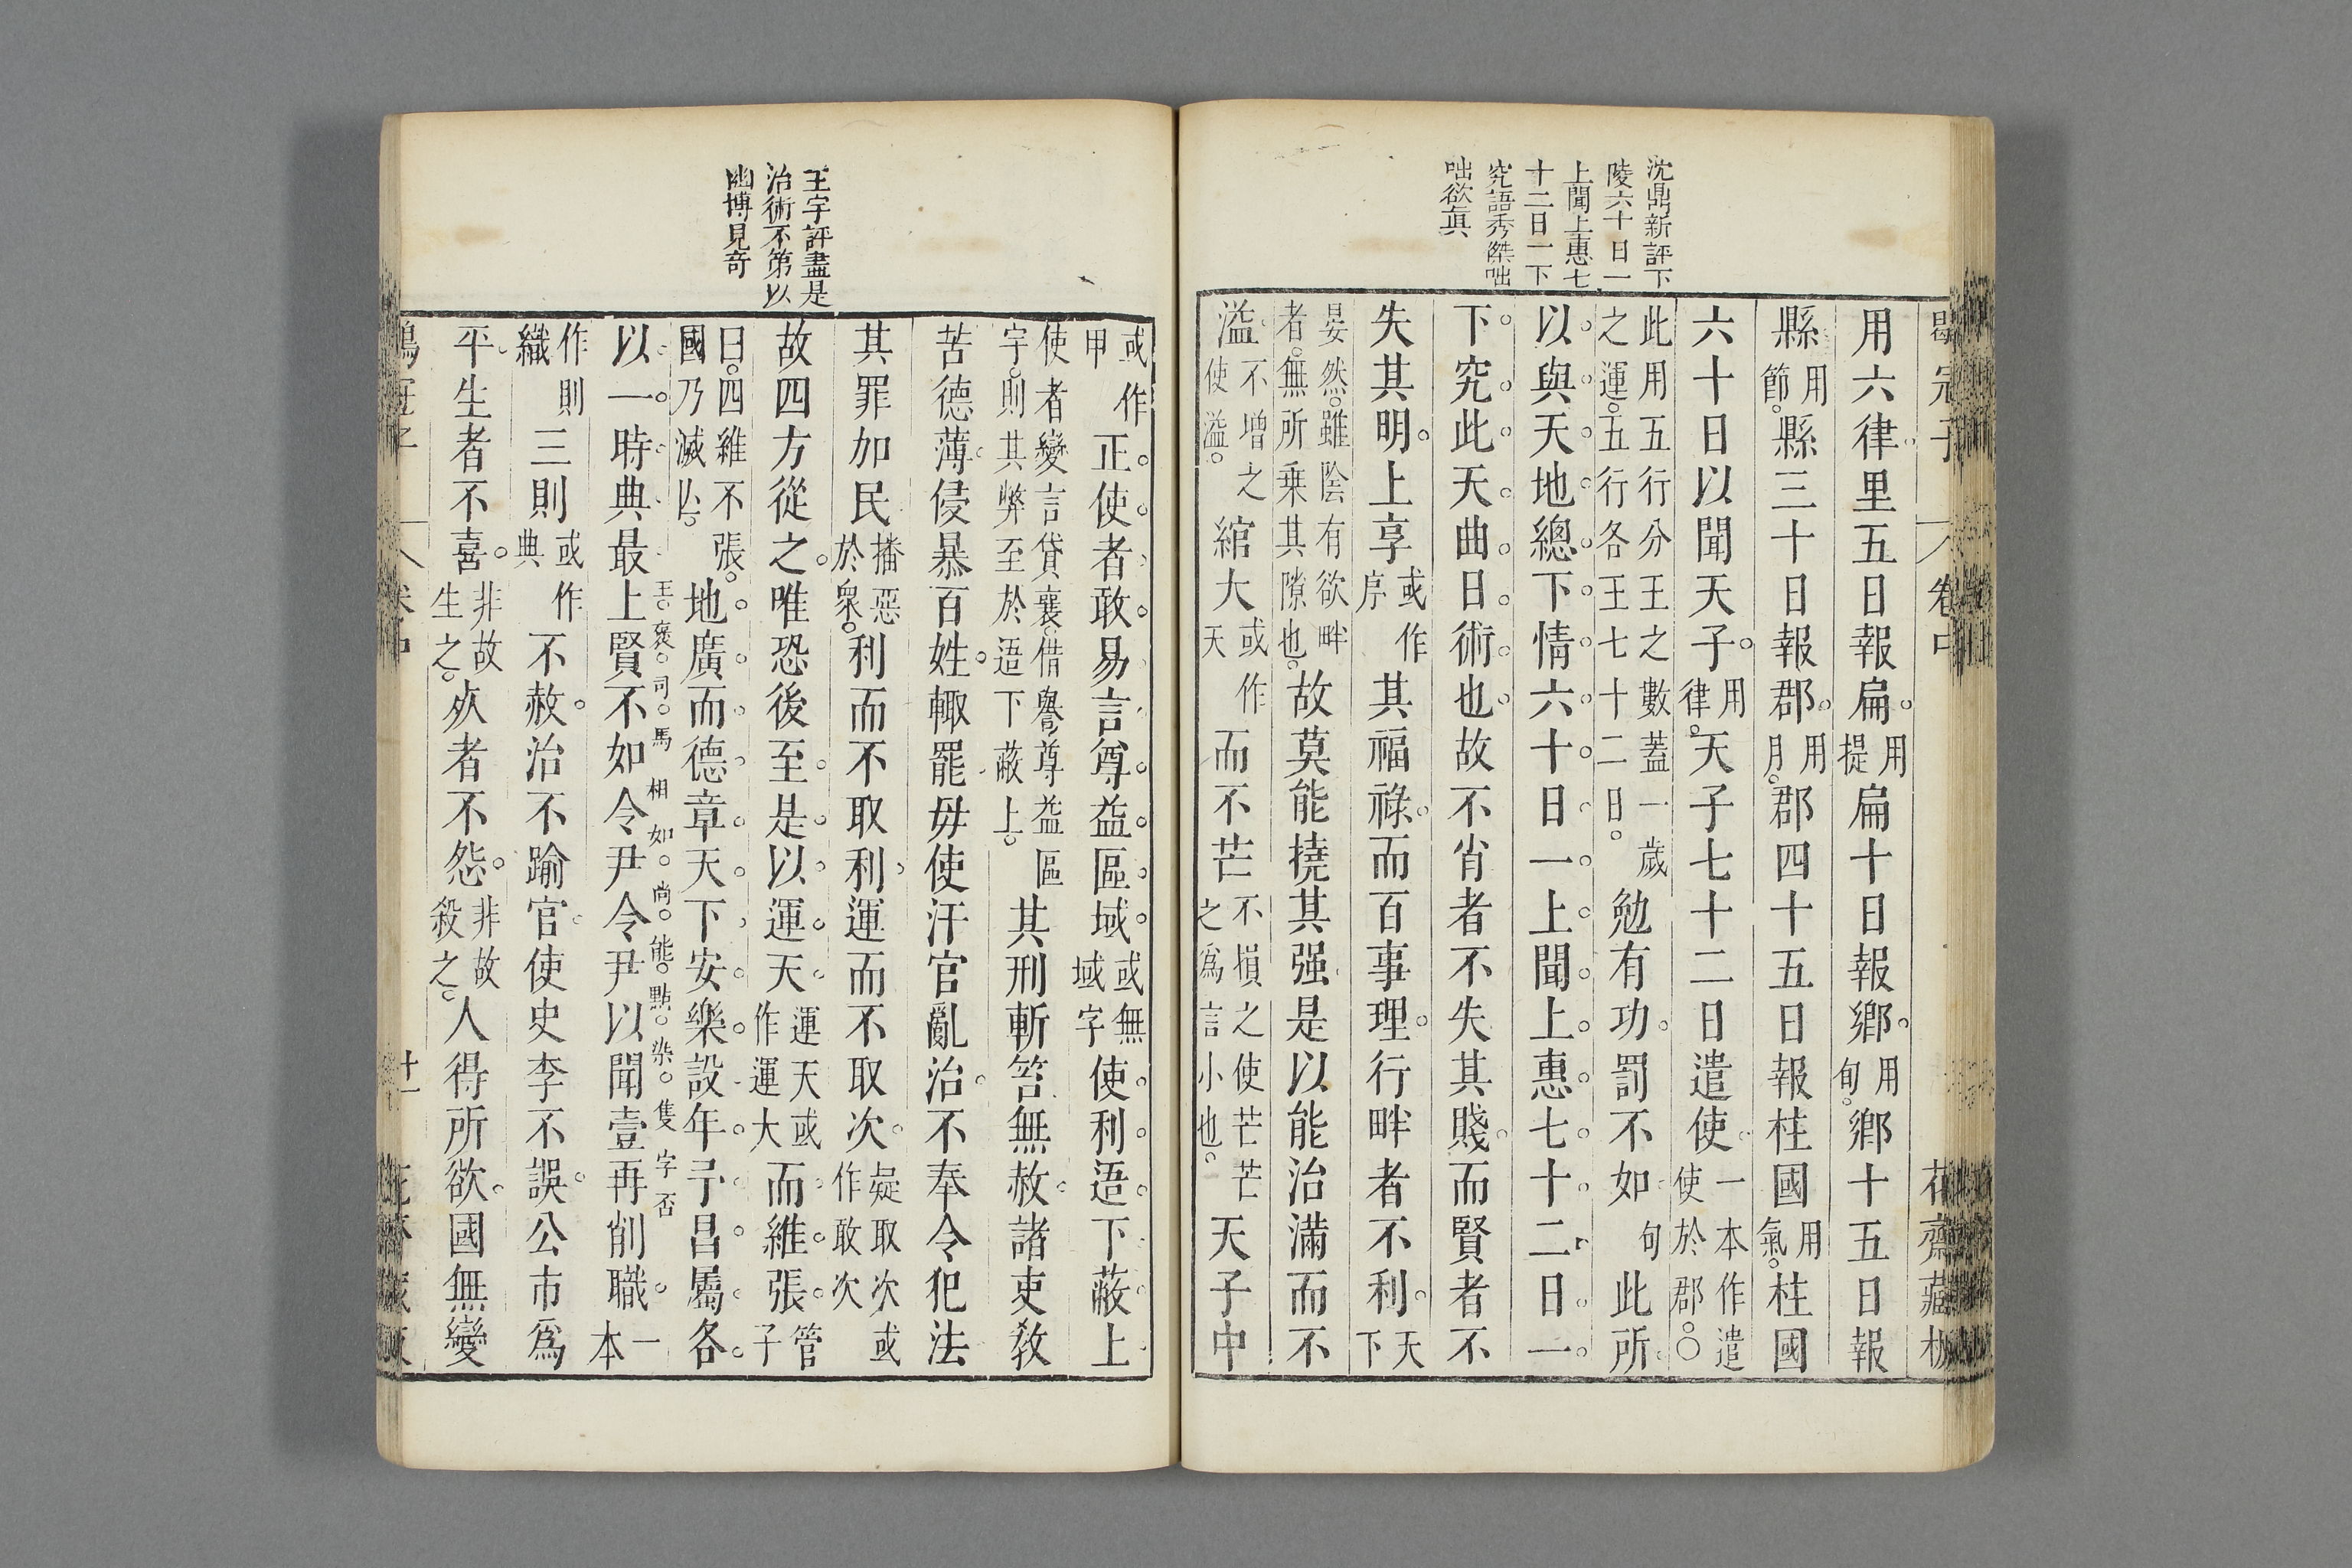 沈鼎新評下
陵六十日一
上聞上惠七
十二日一下
究語秀傑咄
咄欲眞
冠子 卷中 花齋藏板
用六律里五日報扁。用提扁十日報鄉。用旬。鄉十五日報
縣用節。縣三十日報郡。用月。郡四十五日報桂國用氣。桂國
六十日以聞天子。用律。天子七十二日遣使一本作遣使於郡。○
此用五行分王之數蓋一歲之運。五行各王七十二日。勉有功罰不如句此所
以與天地總下情六十日一上聞上惠七十二日一
下究此天曲日術也故不肖者不失其賤而賢者不
失其明。上享或作序其福祿而百事理行畔者不利天下
晏然。雖陰有欲畔者。無所乗其隙也。故莫能撓其强是以能治滿而不
溢不增之使溢。綰大或作天而不芒不損之使芒芒之爲言小也。天子中
王宇評盡是
治術不第以
幽博見竒
或作甲正。使者敢易言尊益區域或無域字使利迃下蔽上
使者變言貸襄。借譽尊益區宇。則其弊至於迃下蔽上。其刑斬笞無赦諸吏敎
苦德薄侵暴百姓。輙罷毋使汗官亂治不奉令犯法
其罪加民播惡於衆。利而不取利運而不取次疑取次或作敢次
故四方從之。唯恐後至是以運天運天或作運大而維張管子
曰。四維不張。國乃滅亾。地廣而德章天下安樂設年予昌屬各
以一時典最上賢不如令尹令尹以聞壹再削職一本
王。褒。司。馬相如。尚。能。點。染。隻字否
作則織三則或作典不赦。治不踰官使史李不誤公市爲
平生者不喜。非故生之。死者不怨。非故殺之。人得所欲國無變
冠子 卷中 十一